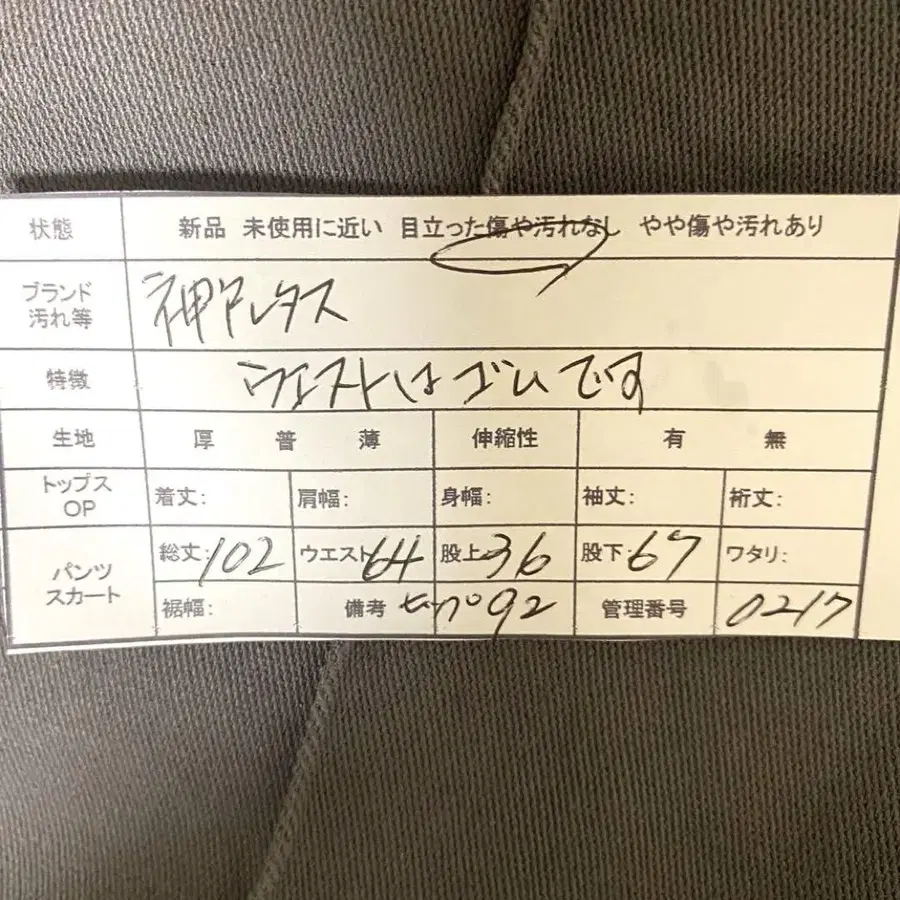 状態 新品 未使用に近い 目立った傷や汚れなし やや傷や汚れあり
ブランド
汚れ等
神戸レタス
特徴 ウエストはゴムです
生地 厚 普 薄 伸縮性 有 無
トップス
OP
着丈: 肩幅: 身幅: 袖丈: 裄丈:
パンツ
スカート
総丈:102 ウエスト64 股上36 股下:67 ワタリ:
裾幅: 備考 ヒップ92 管理番号 0217